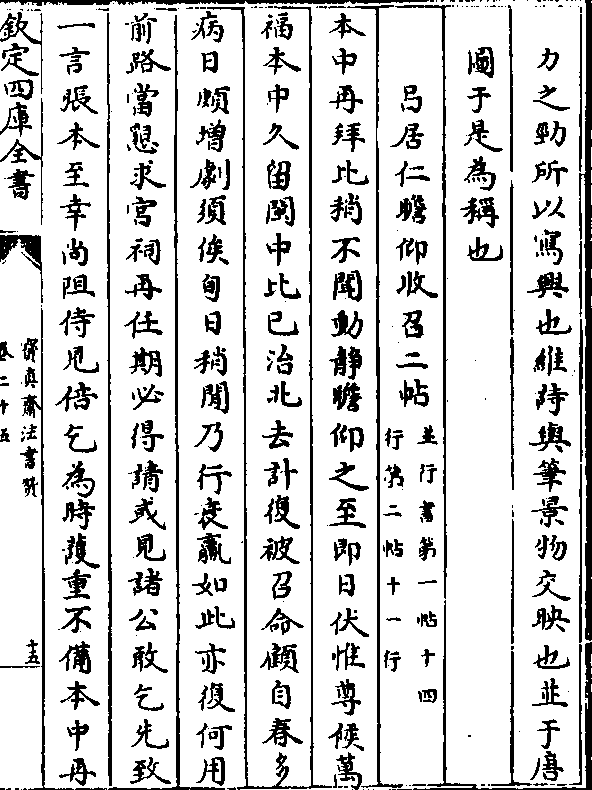 力之勁所以寫興也維詩與筆景物交映也並于唐
國于是為稱也
呂居仁瞻仰收召二帖並行書第一帖十四行第二帖十一行
本中再拜比稍不聞動静瞻仰之至即日伏惟尊候萬
福本中久留閩中比已治北去計復被召命顧自春多
病日頗增劇須俟旬日稍閒乃行衰羸如此亦復何用
前路當懇求宫祠再任期必得請或見諸公敢乞先致
一言張本至幸尚阻侍見倍乞為時䕶重不備本中再
欽定四庫全書
寳真齋法書賛
卷二十五
十五